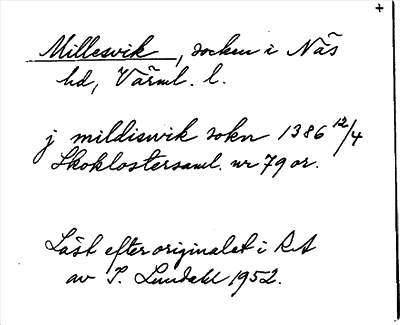 +
Millesvik, socken i Näs
hd, Värml. l.
j mildiswik sokn 1386 12/4
Skoklostersaml. nr 79 or.
Läst efter originalet i RA
av P. Lindahl 1952.